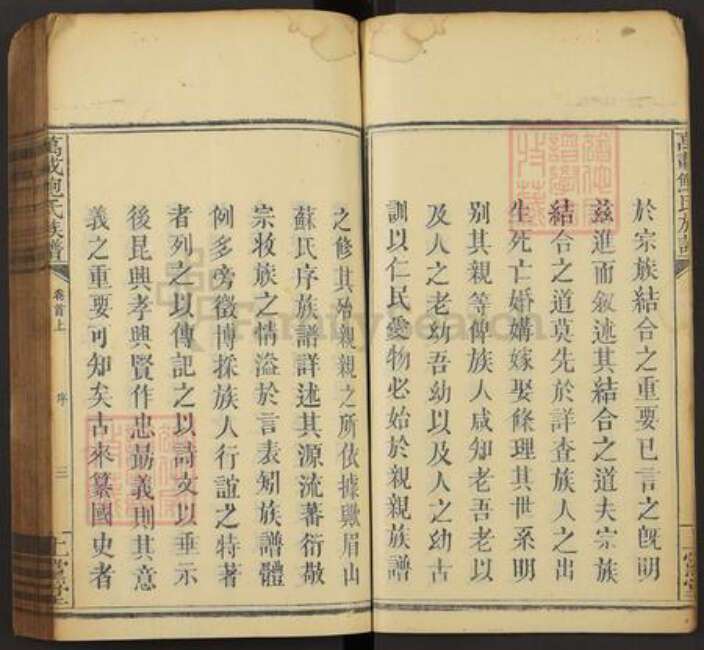 於宗族結合之重要已言之旣明
茲進而叙述其結合之道夫宗族
結合之道莫先於詳查族人之出
生死亡婚媾嫁娶條理其世系明
别其親等俾族人咸知老吾老以
及人之老幼吾幼以及人之幼古
訓以仁民愛物必始於親親族譜
之修其殆親親之所依據歟眉山
蘇氏序族譜詳述其源流蕃衍敬
宗收族之情溢於言表矧族譜體
例多旁徵博採族人行誼之特著
者列之以傳記之以詩文以垂示
後昆興孝興賢作忠勗義則其意
義之重要可知矣古來纂國史者
萬載鮑氏族譜
卷首上
序
三
FamilySearch